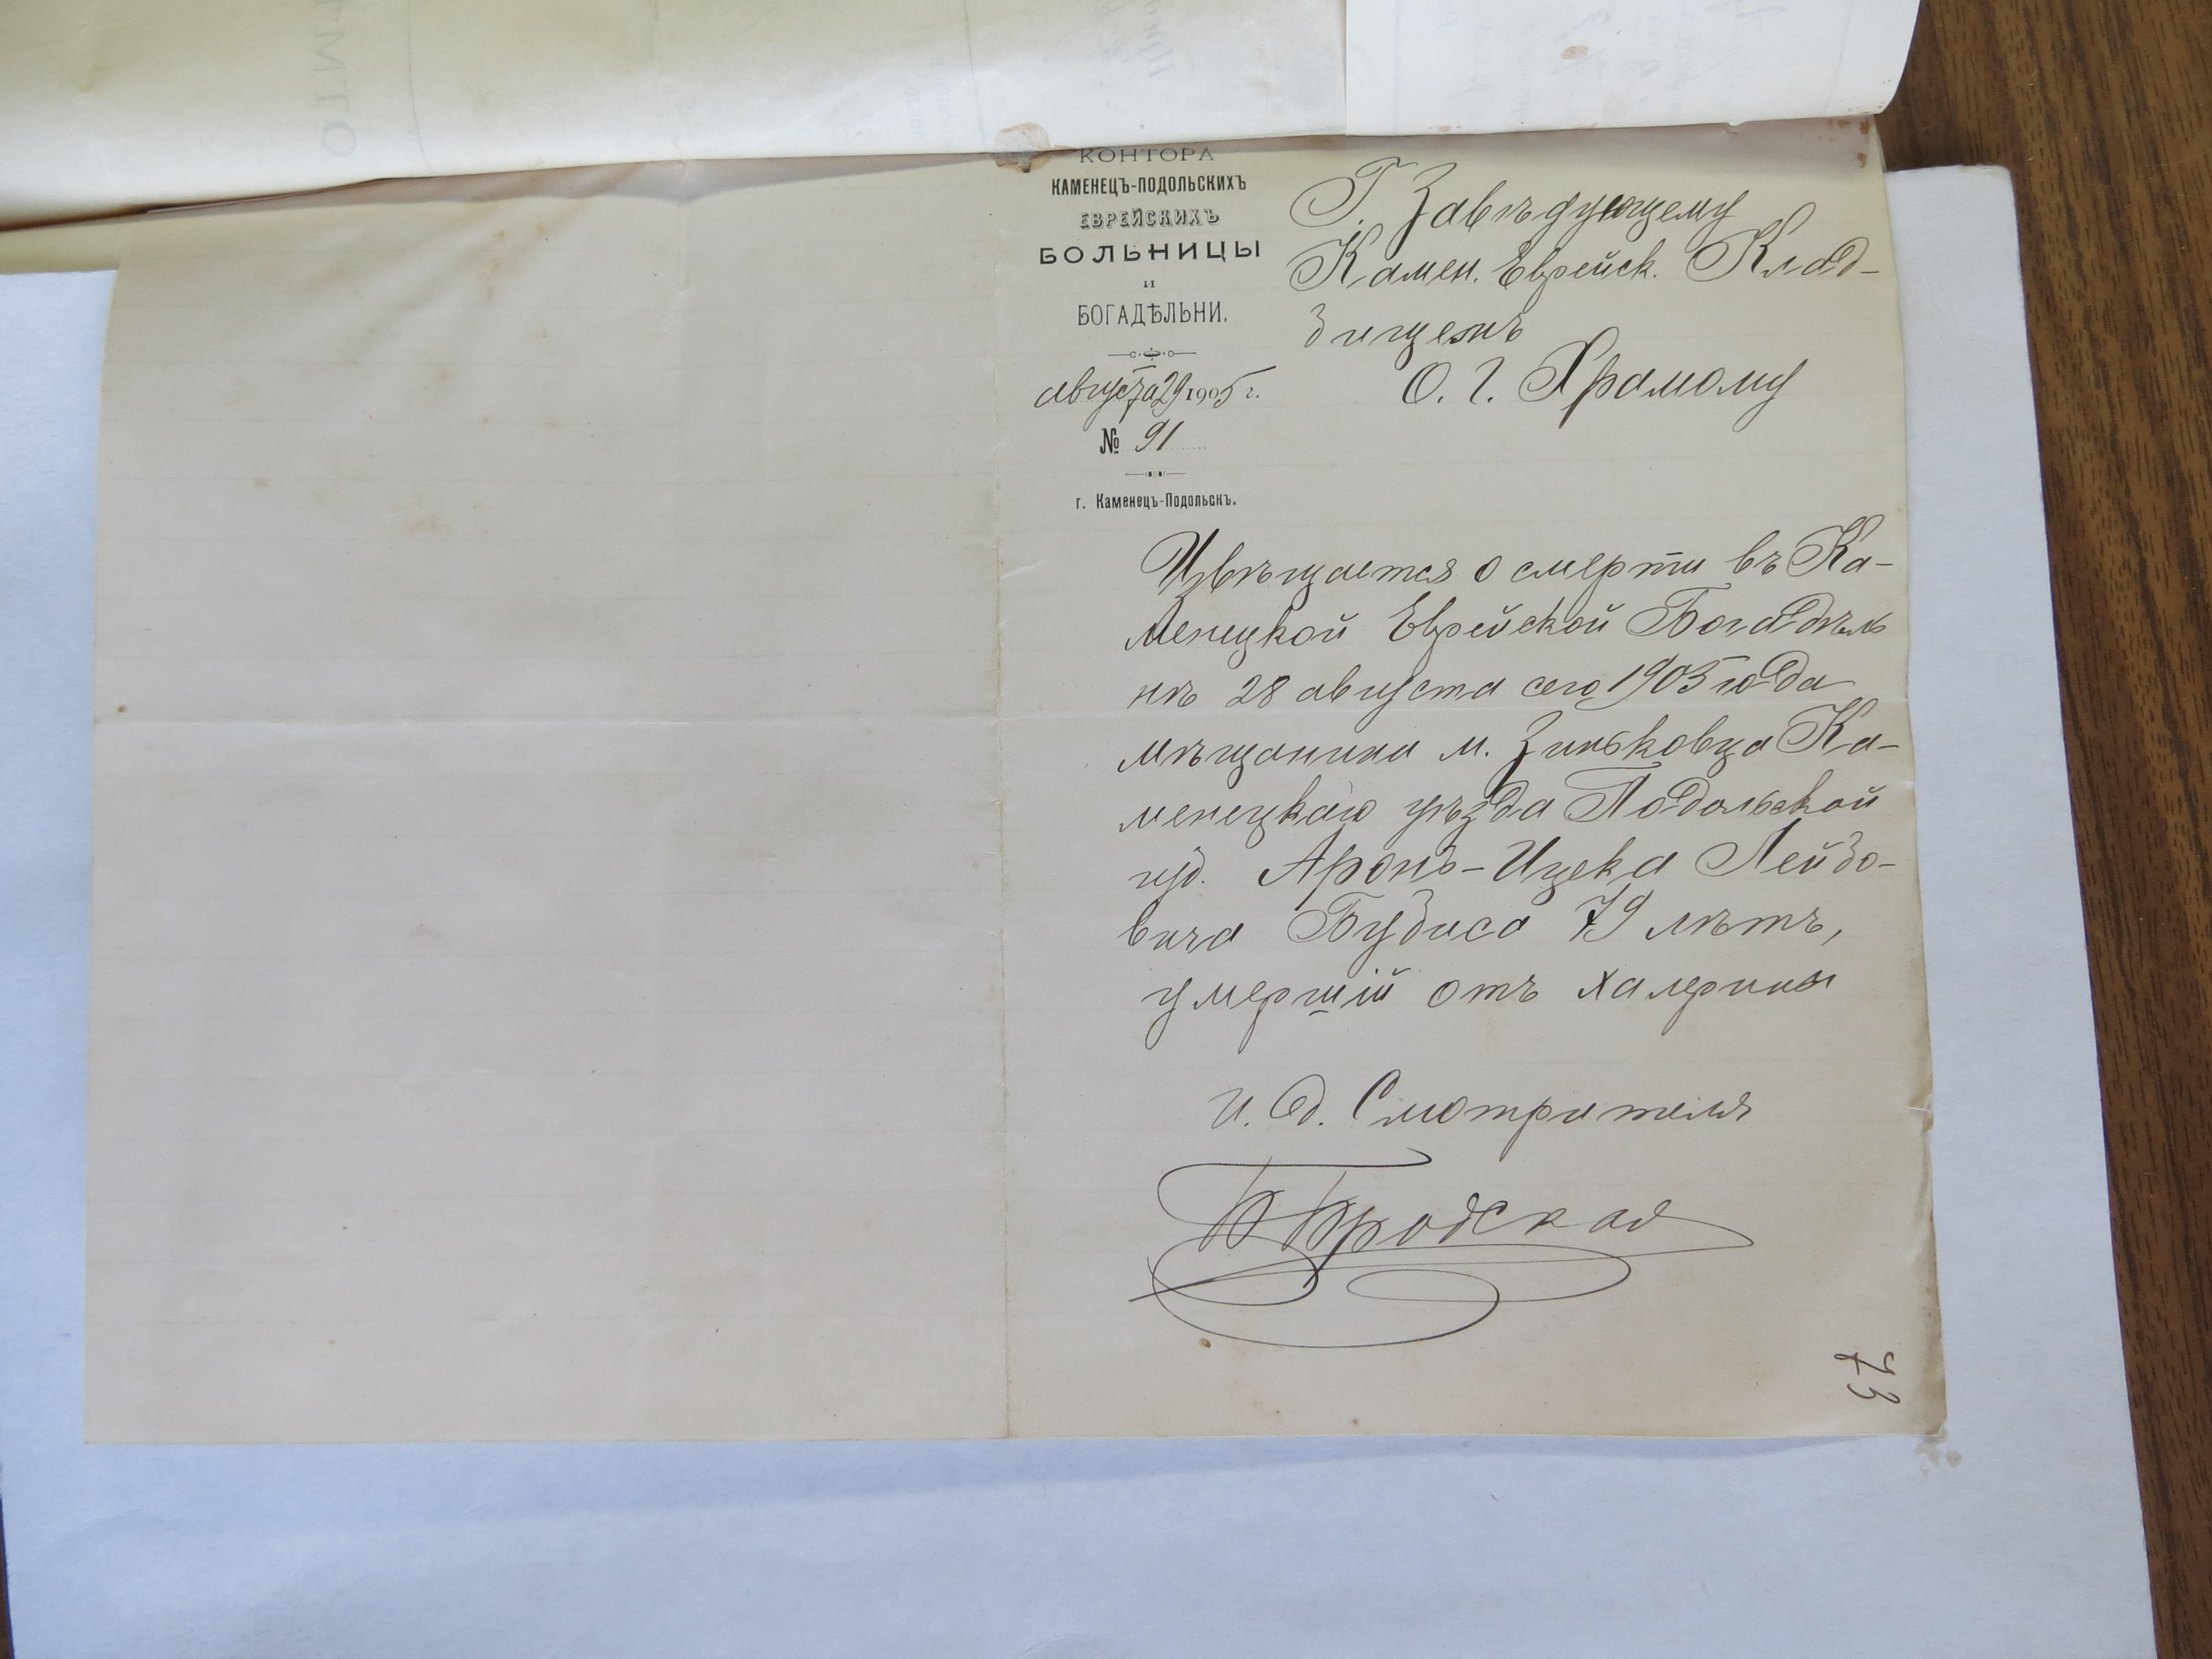 КОНТОРА
КАМЕНЕЦЪ-ПОДОЛЬСКИХЪ
ЕВРЕЙСКИХЪ
БОЛЬНИЦЫ
и
БОГАДѢЛЬНИ.
августа 29 1905 г.
№ 91
г. Каменецъ-Подольскъ.
Г. Завѣдующему
Камен. Еврейск. Клад-
бищемъ
О. Г. Храмому
Извѣщается о смерти въ Ка-
менецкой Еврейской Богадѣль
нѣ 28 августа сего 1905 года
мѣщанина м. Зиньковца Ка-
менецкаго уѣзда Подольской
губ. Аронъ-Ицека Лейбо-
вича Будиса 79 лѣтъ,
умершій отъ халерины
И. Об. Смотрителя
Б Бродская
73